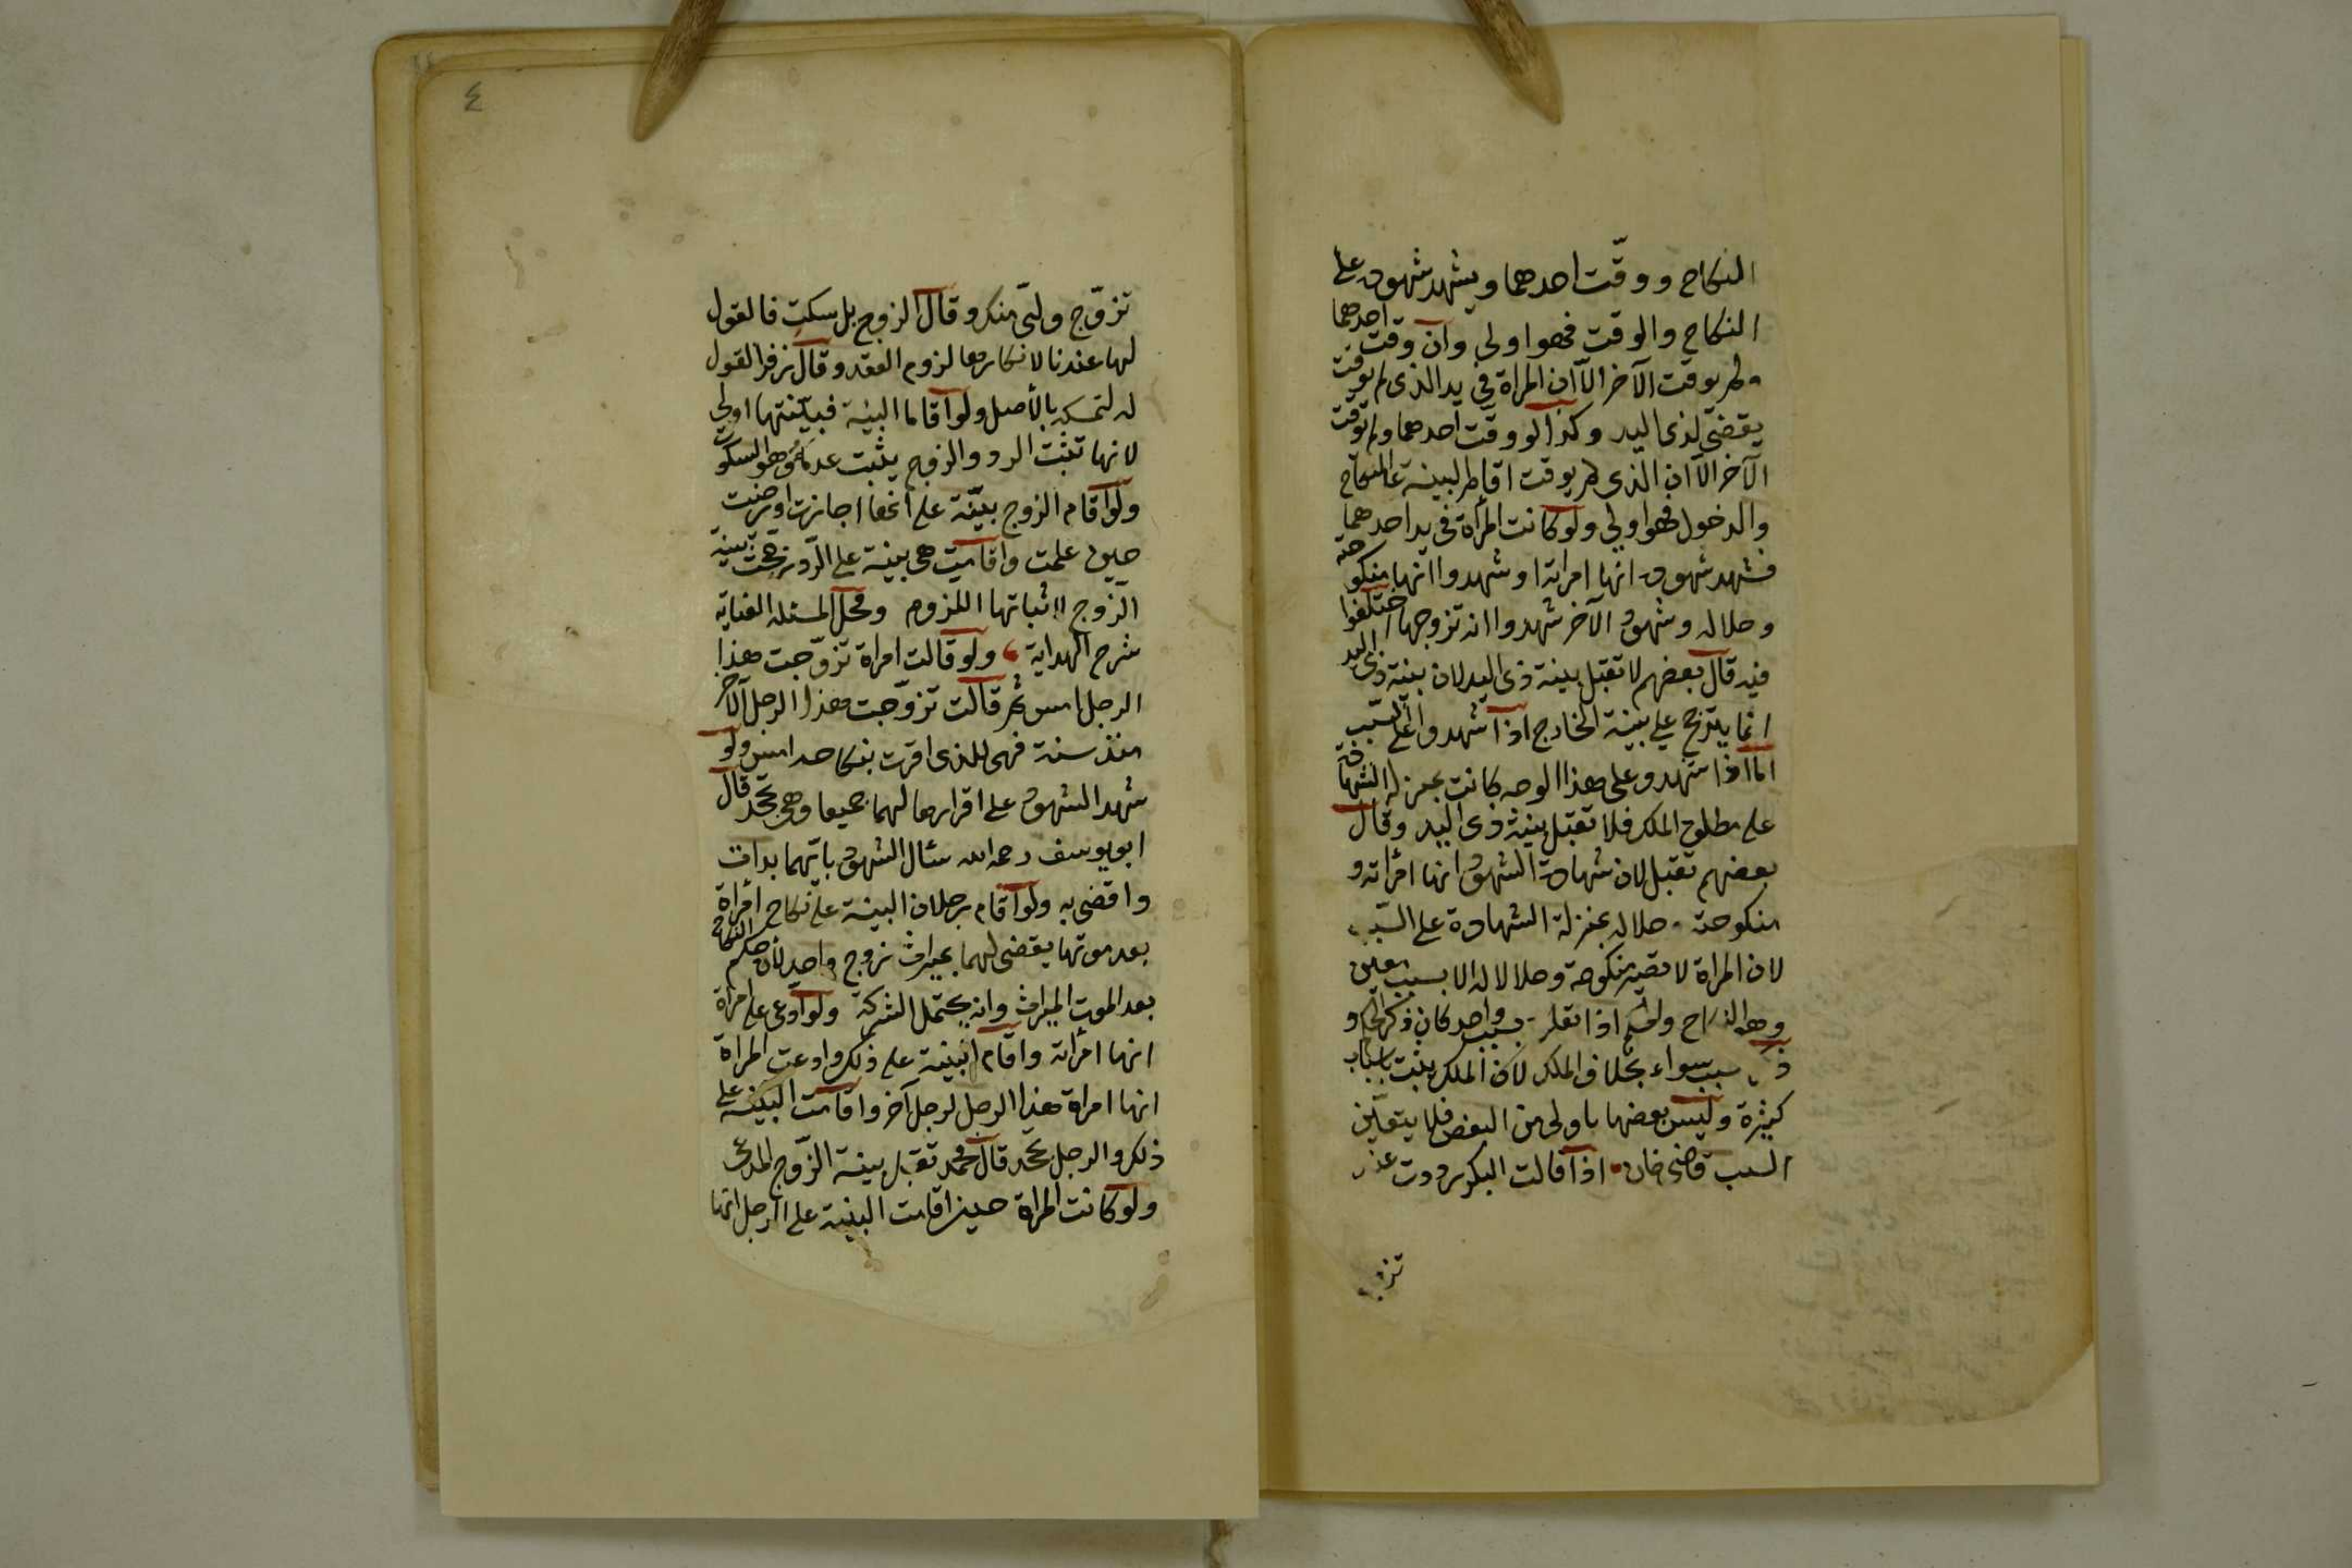 النكاح ووقّت احدهما ويشهد شهود على
النكاح والوقت فهو اولى وان وقت احدهما
ولم يوقت الآخر الّا ان المراة في يد الذى لم يوقت
يقضى لذى اليد وكذا لو وقت احدهما ولم توقت
الآخر الّا ان الّذى لم يوقت اقام البينة على النكاح
والدخول فهو اولى ولو كانت المرأة في يد احدهما
فشهد شهود انها امراته او شهدوا انها منكوحته
وحلاله وشهود الآخر شهدوا انه تزوجها اختلفوا
فيه قال بعضهم لا تقبل بينة ذى اليد لان بينة ذى اليد
انما يترجح على بينة الخارج اذا شهدوا على السّبب
اما اذا شهدو على هذا الوجه كانت بمنزلة الشهادة
على مطلق الملك فلا تقبل بينة ذى اليد وقال
بعضهم تقبل لان شهادة الشهود انها امرأته و
منكوحته حلاله بمنزلة الشهادة على السّبب
لان المراة لا تصير منكوحة وحلالا له الا بسبب معين
وهو النكاح والحكم اذا تعلق بسبب واحد كان ذكر الحكم و
ذكر السبب سواء بخلاف الملك لان الملك يثبت باسباب
كثيرة وليس بعضها باولى من البعض فلا يتعيّن
السبب قاضى خان اذا قالت البكر رددت عند
تزوج
٤
تزوّج وليّ منكر وقال الزوج بل سكتِ فالقول
لها عندنا لانكارها لزوم العقد وقال زفر القول
له لتمسكه بالأصل ولو اقاما البينة فبيّنتها اولى
لانها تثبت الرد والزوج يثبت عدمه وهو السكوت
ولو اقام الزوج بيّنة على انها اجازت او رضيت
حين علمت واقامت هى بينة على الرّد ترجحت بينة
الزوج لاثباتها اللزوم ومحل المسئلة العناية
شرح الهداية ولو قالت امراة تزوّجت هذا
الرجل امس ثم قالت تزوّجت هذا الرجل الآخر
منذ سنة فهى للذى اقرت بنكاحه امس ولو
شهد الشهود على اقرارها لهما جميعا وهى تجحد قال
ابو يوسف رحمه الله سئال الشهود بايّهما بدات
واقضى به ولو اقام رجلان البينة على نكاح امرأة
بعد موتها يقضى لهما بميراث زوج واحد لان حكم النكاح
بعد الموت الميراث وانه يحتمل الشركة ولو ادعى على امرأة
انها امرأته واقام البينة على ذلك وادعت المراة
انها امراة هذا الرجل لرجل آخر واقامت البيّنة على
ذلك والرجل يجحد قال محمد تقبل بينة الزّوج المدعى
ولو كانت المراة حين اقامت البينة على الرجل انها